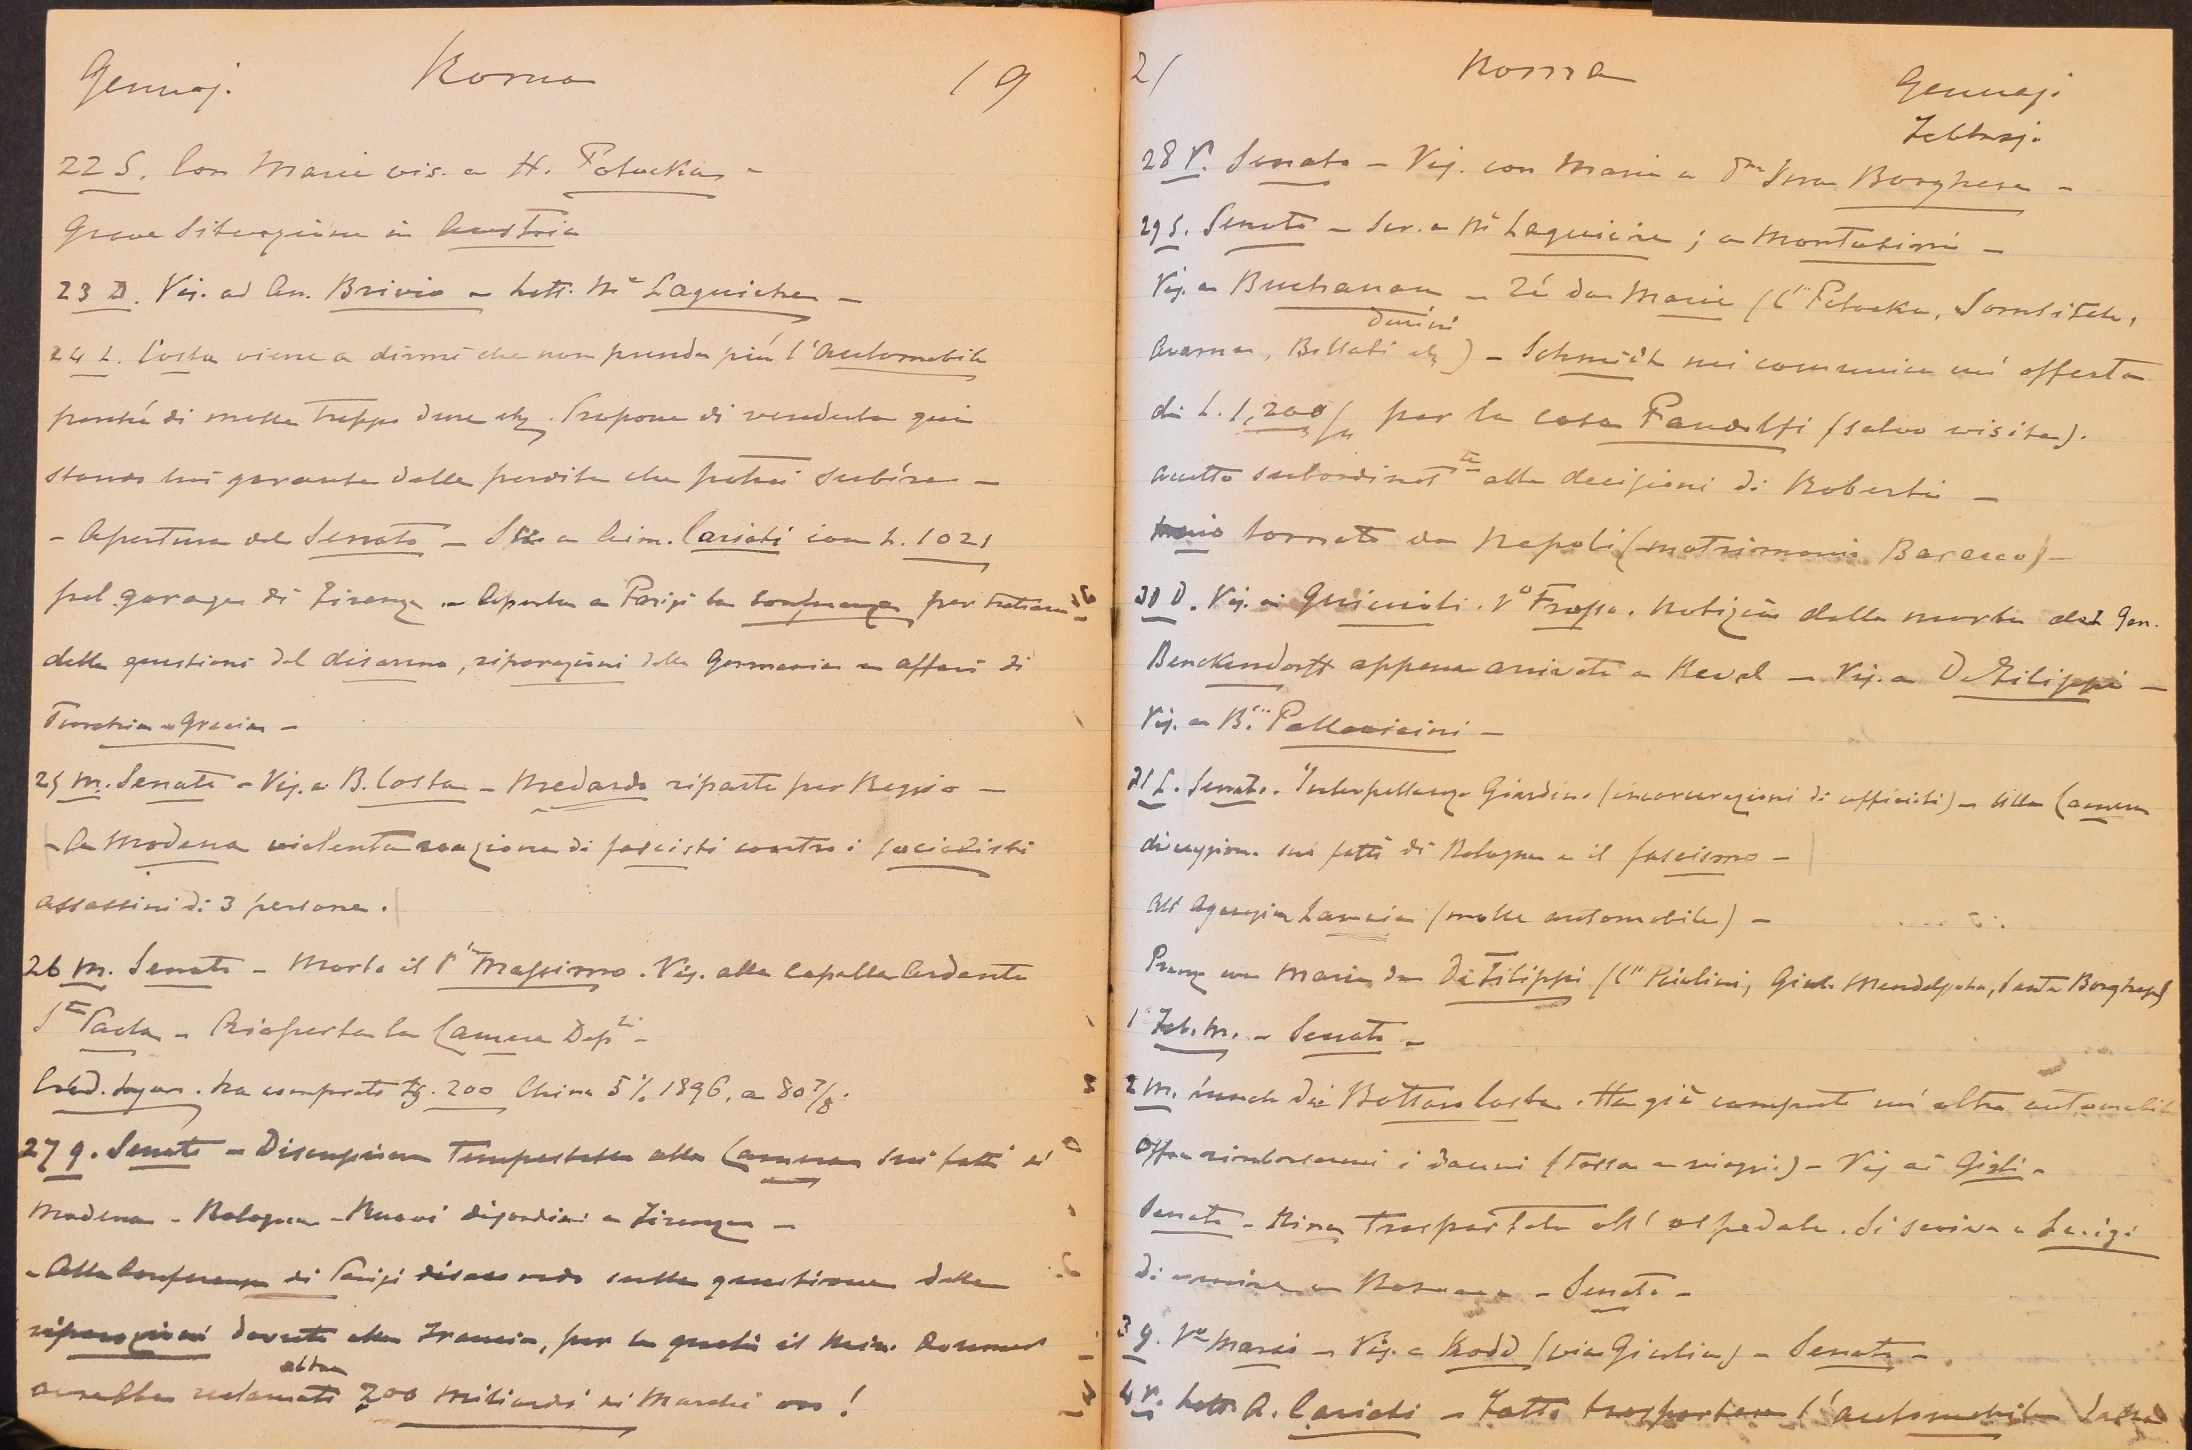 Gennaj. Roma 19
22 S. Con Marie vis. a H. Potocka –
Grave situazione in Austria
23 D. Vis. ad An. Brivio – Lett. M.e Laguiche –
24 L. Costa viene a dirmi che non prende più l'Automobile
perché di molle troppo dure etc. Propone di venderla qui
stando lui garante della perdita che potrei subire –
– Apertura del Senato – a Aim. Cariati con L. 1021
pel garage di Firenze – Aperta a Parigi la conferenza per trattare
delle questioni del disarmo, riparazioni della Germania e affari di
Turchia e Grecia –
25 M. Senato – Vis. a B. Costa – Medardo riparte per Reggio –
– A Modena violenta reazione di fascisti contro i socialisti
assassini di 3 persone.
26 M. Senato – Morto il P. Massimo. Vis. alla Capella Ardente
Paola – Riaperta la Camera Dep.ti –
Créd. Lyon. ha comprato 200 China 5% 1896, a 80 7/8.
27 G. Senato – Discussione tempestosa alla Camera sui fatti di
Modena – Bologna – Nuovi disordini a Firenze –
– Alla Conferenza di Parigi disaccordo sulla questione delle
riparazioni dovute alla Francia, per le quali il Min. Doumer
avrebbe reclamati altre 200 miliardi di Marchi oro!
21 Roma Gennaj.
Febbraj.
28 V. Senato – Vis. con Marie a Borghese –
29 S. Senato – Scr. a M.e Laguiche; a Montasini –
Vis. a Buchanan – Té da Marie (C.ssa Potocka,
Avarna, Bellati etc) Durini – Schmidt mi comunica un'offerta
di L. 1,200/m per la casa Pandolfi (salvo visita).
Accetto subordinat.te alle decisioni di Roberti –
tornato da Napoli (matrimonio Baracco) –
30 D. Vis. ai Guiccioli. V.o Frasso. Notizia della morte del Gen.
Benckendorff appena arrivato a Reval – Vis. a De Filippi –
Vis. a B. Pallavicini –
31 L. Senato. Interpellanza Giardino (incarcerazioni di ufficiali) – Alla Camera
discussione sui fatti di Bologna e il fascismo –
All'Agenzia Lancia (molle automobile) –
Pranzo con Marie da De Filippi (C.ssa Pasolini, Giul. Mendelssohn, Santa Borghese)
1 Feb. M. – Senato –
2 M. lunch dai Bottaro Costa. Ha già comprato un'altra automobile
Offre rimborsarmi i danni (tassa e viaggio) – Vis. ai Gigli –
Senato – Nina trasportata all'ospedale. Si scrive a Luigi
di venire a Roma – Senato –
3 G. Mario – Vis. a Rodd (via Giulia) – Senato –
4 V. Lett. A. Cariati – Fatto trasportare l'automobile